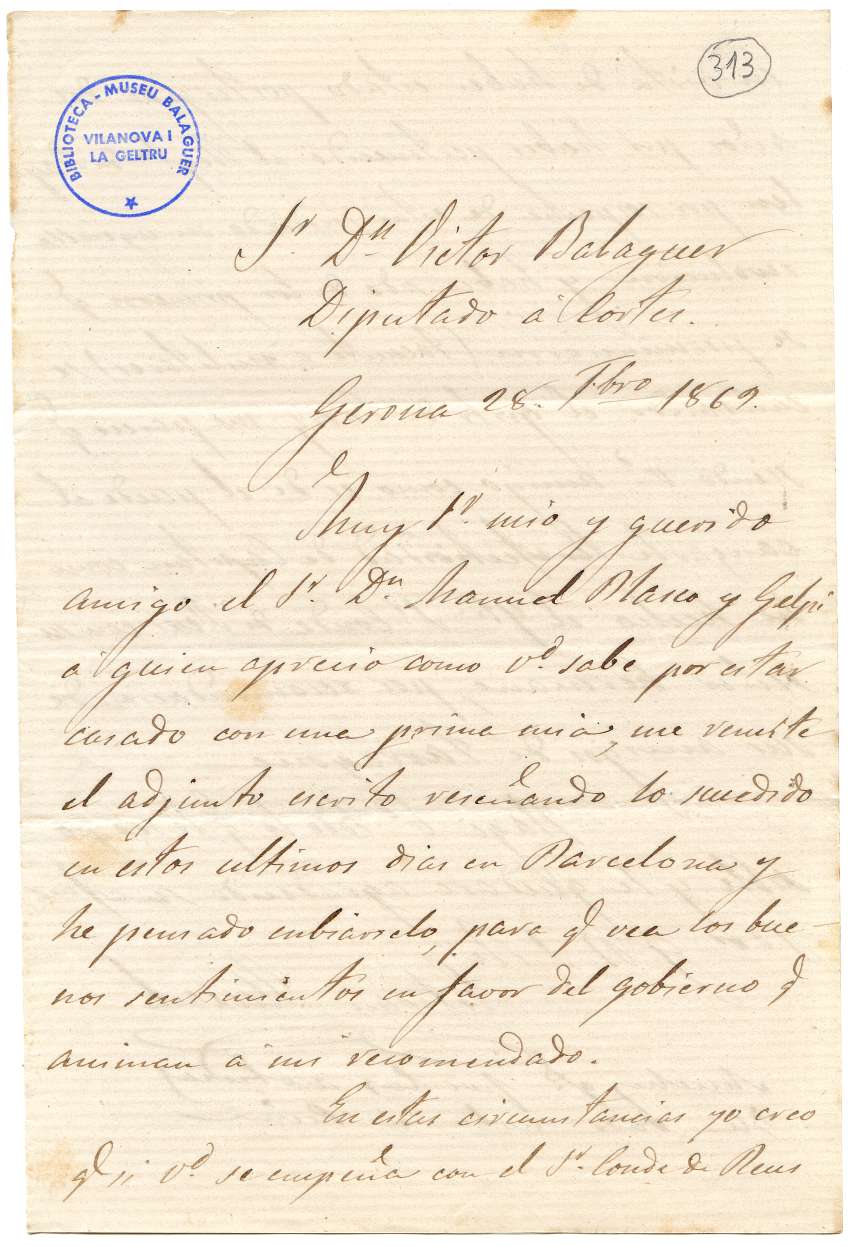 313
BIBLIOTECA - MUSEU BALAGUER
VILANOVA I
LA GELTRU
Sr. Dn Victor Balaguer
Diputado á Cortes.
Gerona 28. 7bro 1869.
Muy Sr. mio y querido
amigo el Sr. Dn. Manuel Blasco y Gelpi
á quien aprecio como Vd. sabe por estar
casado con una prima mia, me remite
el adjunto escrito reseñando lo sucedido
en estos ultimos dias en Barcelona y
he pensado enbiárselo, para q vea los bue-
nos sentimientos en favor del gobierno q
animan á mi recomendado.
En estas circunstancias yo creo
q si Vd. se empeña con el Sr. Conde de Reus